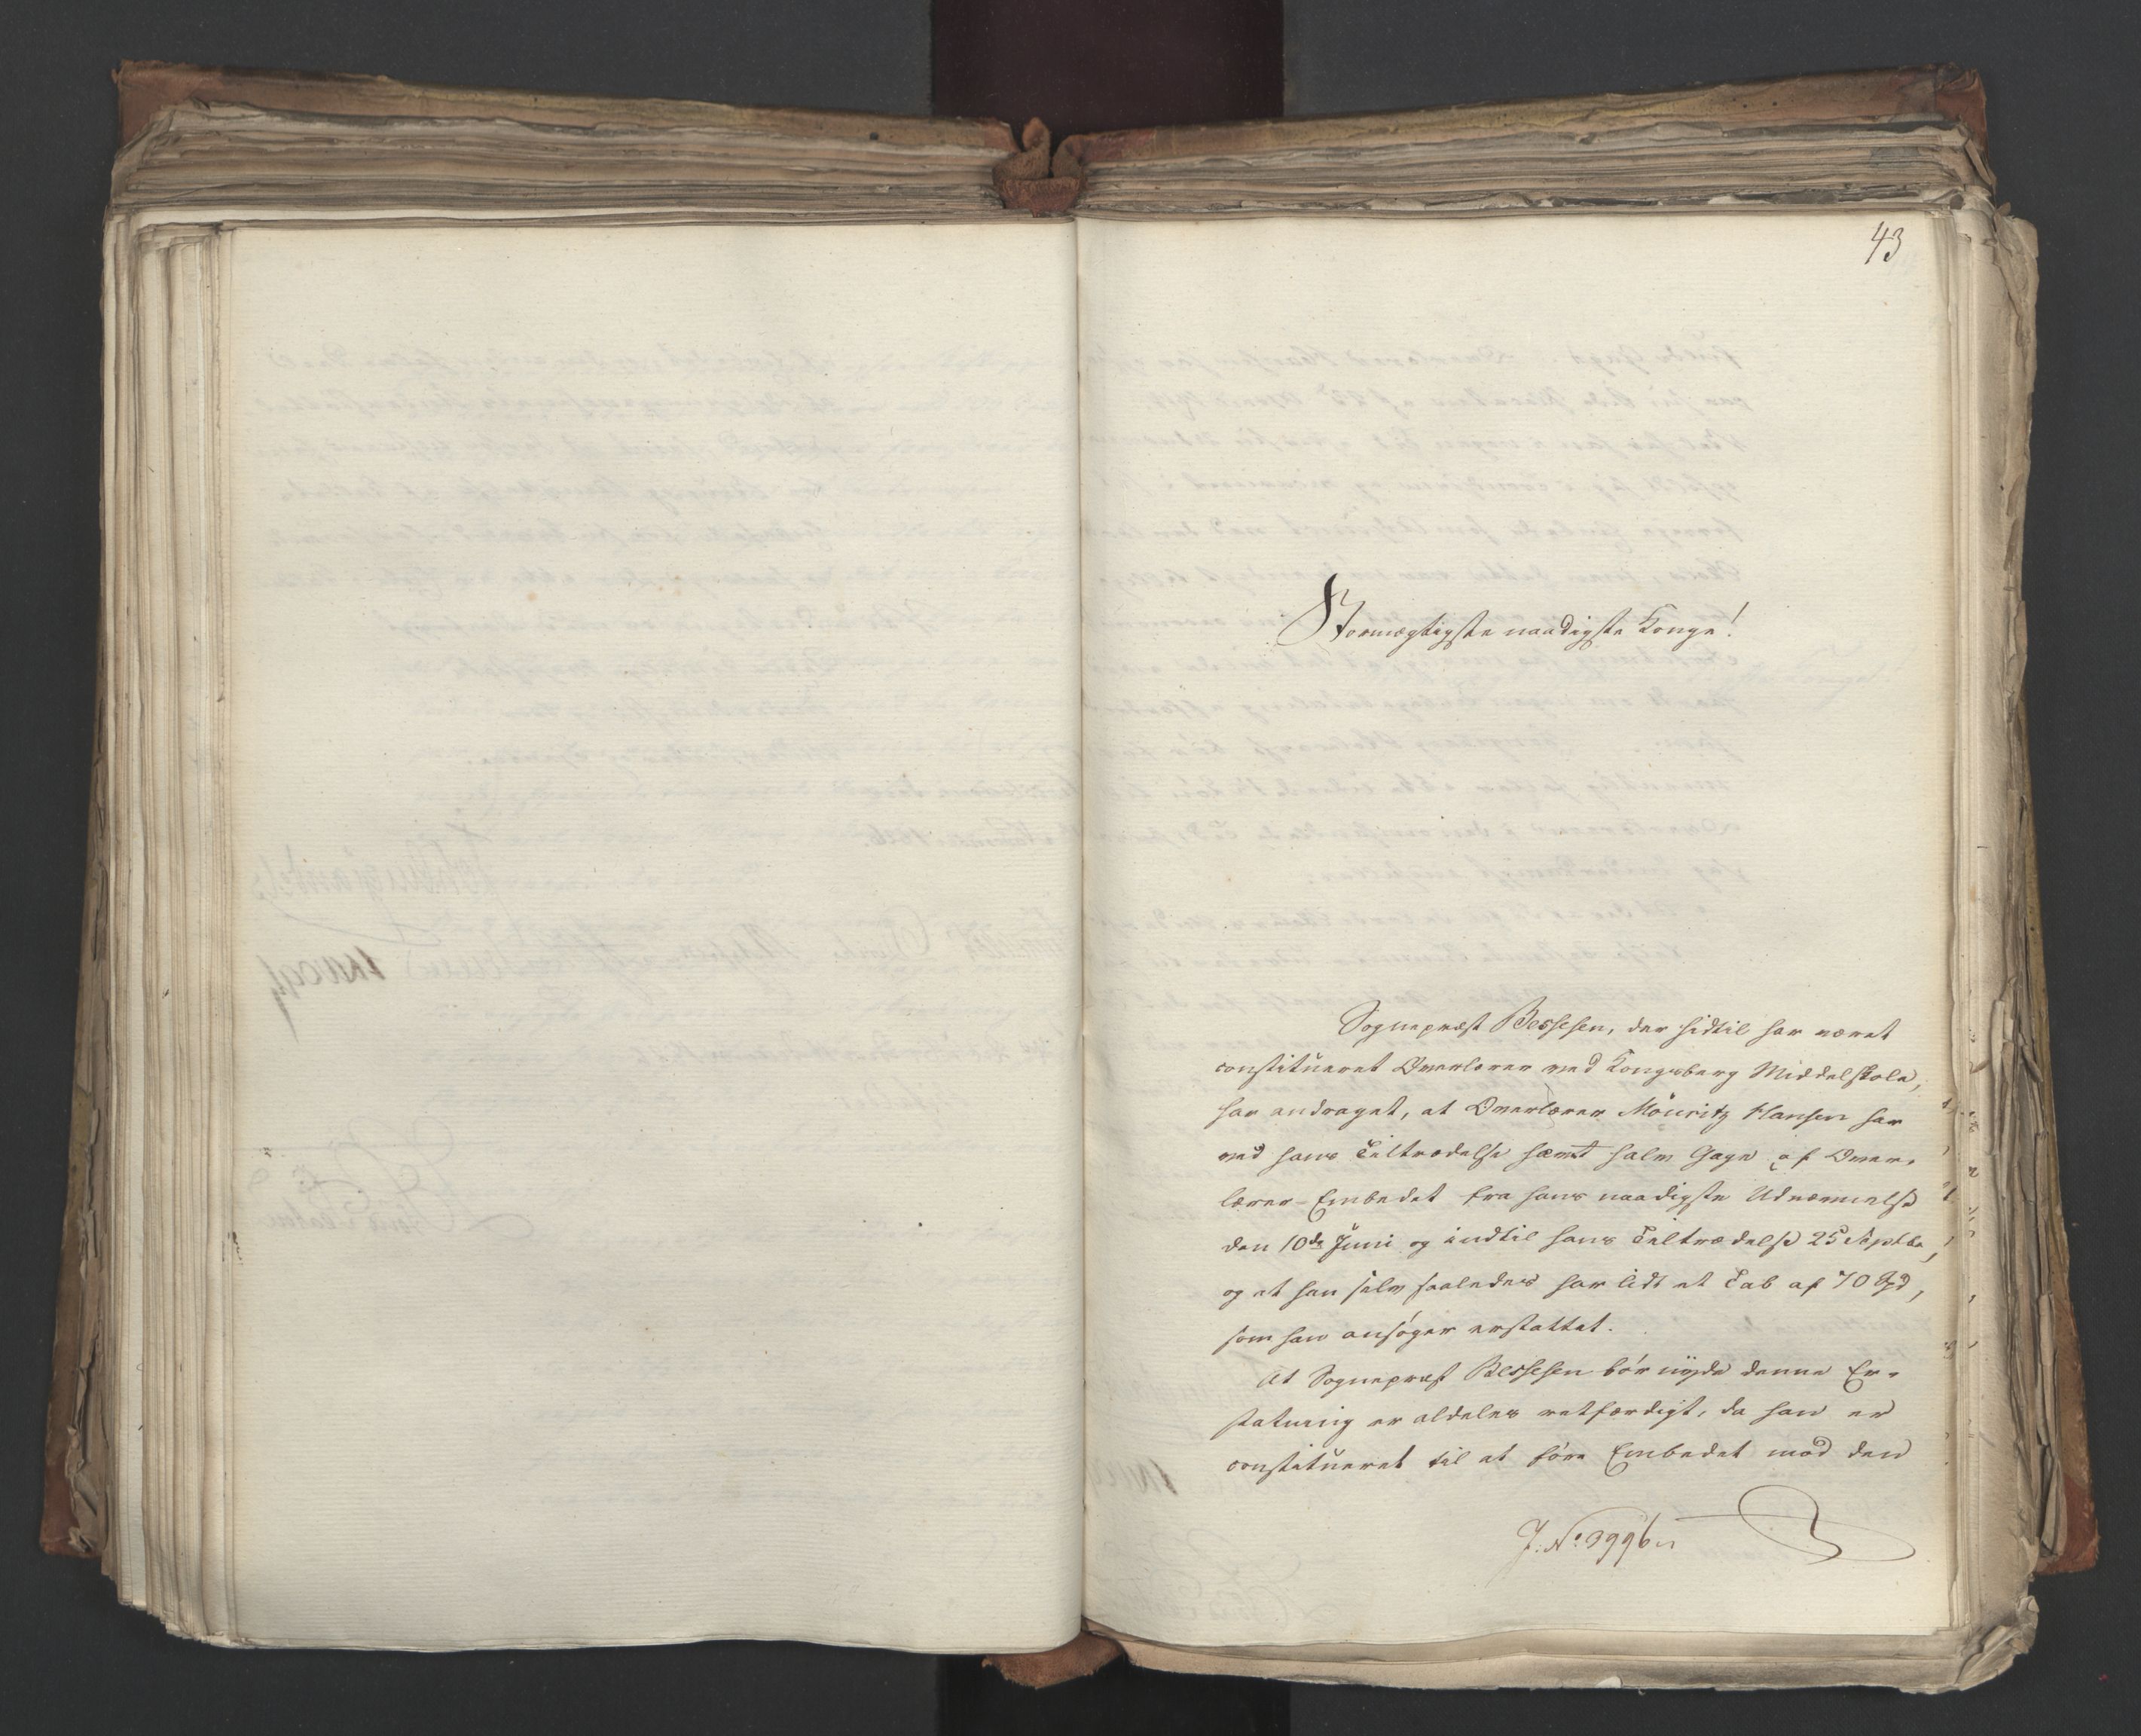 43
Stormægtigste naadigste Konge!
Sognepræst Bessesen, der hidtil har været
constitueret Overlærer ved Kongsberg Middelskole,
har andraget, at Overlærer Mouritz Hansen har
ved hans Tiltrædelse hævet halv Gage af Over-
lærer-Embedet fra hans naadigste Udnævnelse
den 10de Juni og indtil hans Tiltrædelse 25 Septbr,
og at han selv saaledes har lidt et Tab af 70 Spd,
som han ansøger erstattet.
At Sognepræst Bessesen bør nyde denne Er-
statning er aldeles retfærdigt, da han er
constitueret til at føre Embedet mod den
J: No 3996